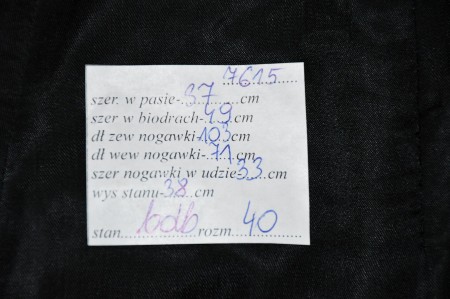 7615
szer. w pasie-37cm
szer w biodrach-49cm
dł zew nogawki-103cm
dł wew nogawki-71cm
szer nogawki w udzie33cm
wys stanu-38cm
stan bdb rozm 40